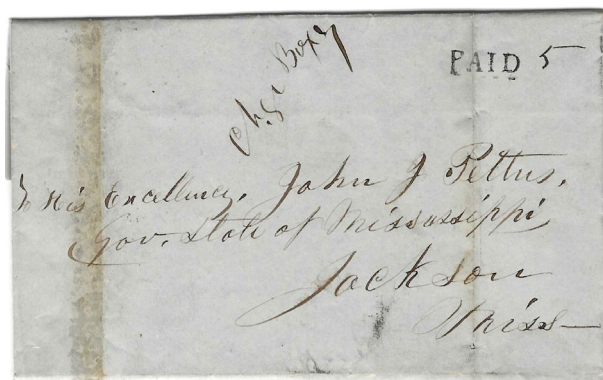 Chg Box 7
PAID 5
To His Excellency, John J Pettus,
Gov. State of Mississippi
Jackson
Miss